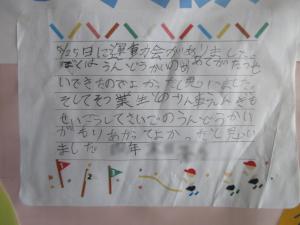 5/25日に運動会がありました。
ぼくはうんどうかいのめあてがたっせ
いできたのでよかったと思いました。
そして卒業生のかんきえん
せいこうしてさいごのうんどうかい
がもりあがってよかったと思い
ました 年
1
2
3